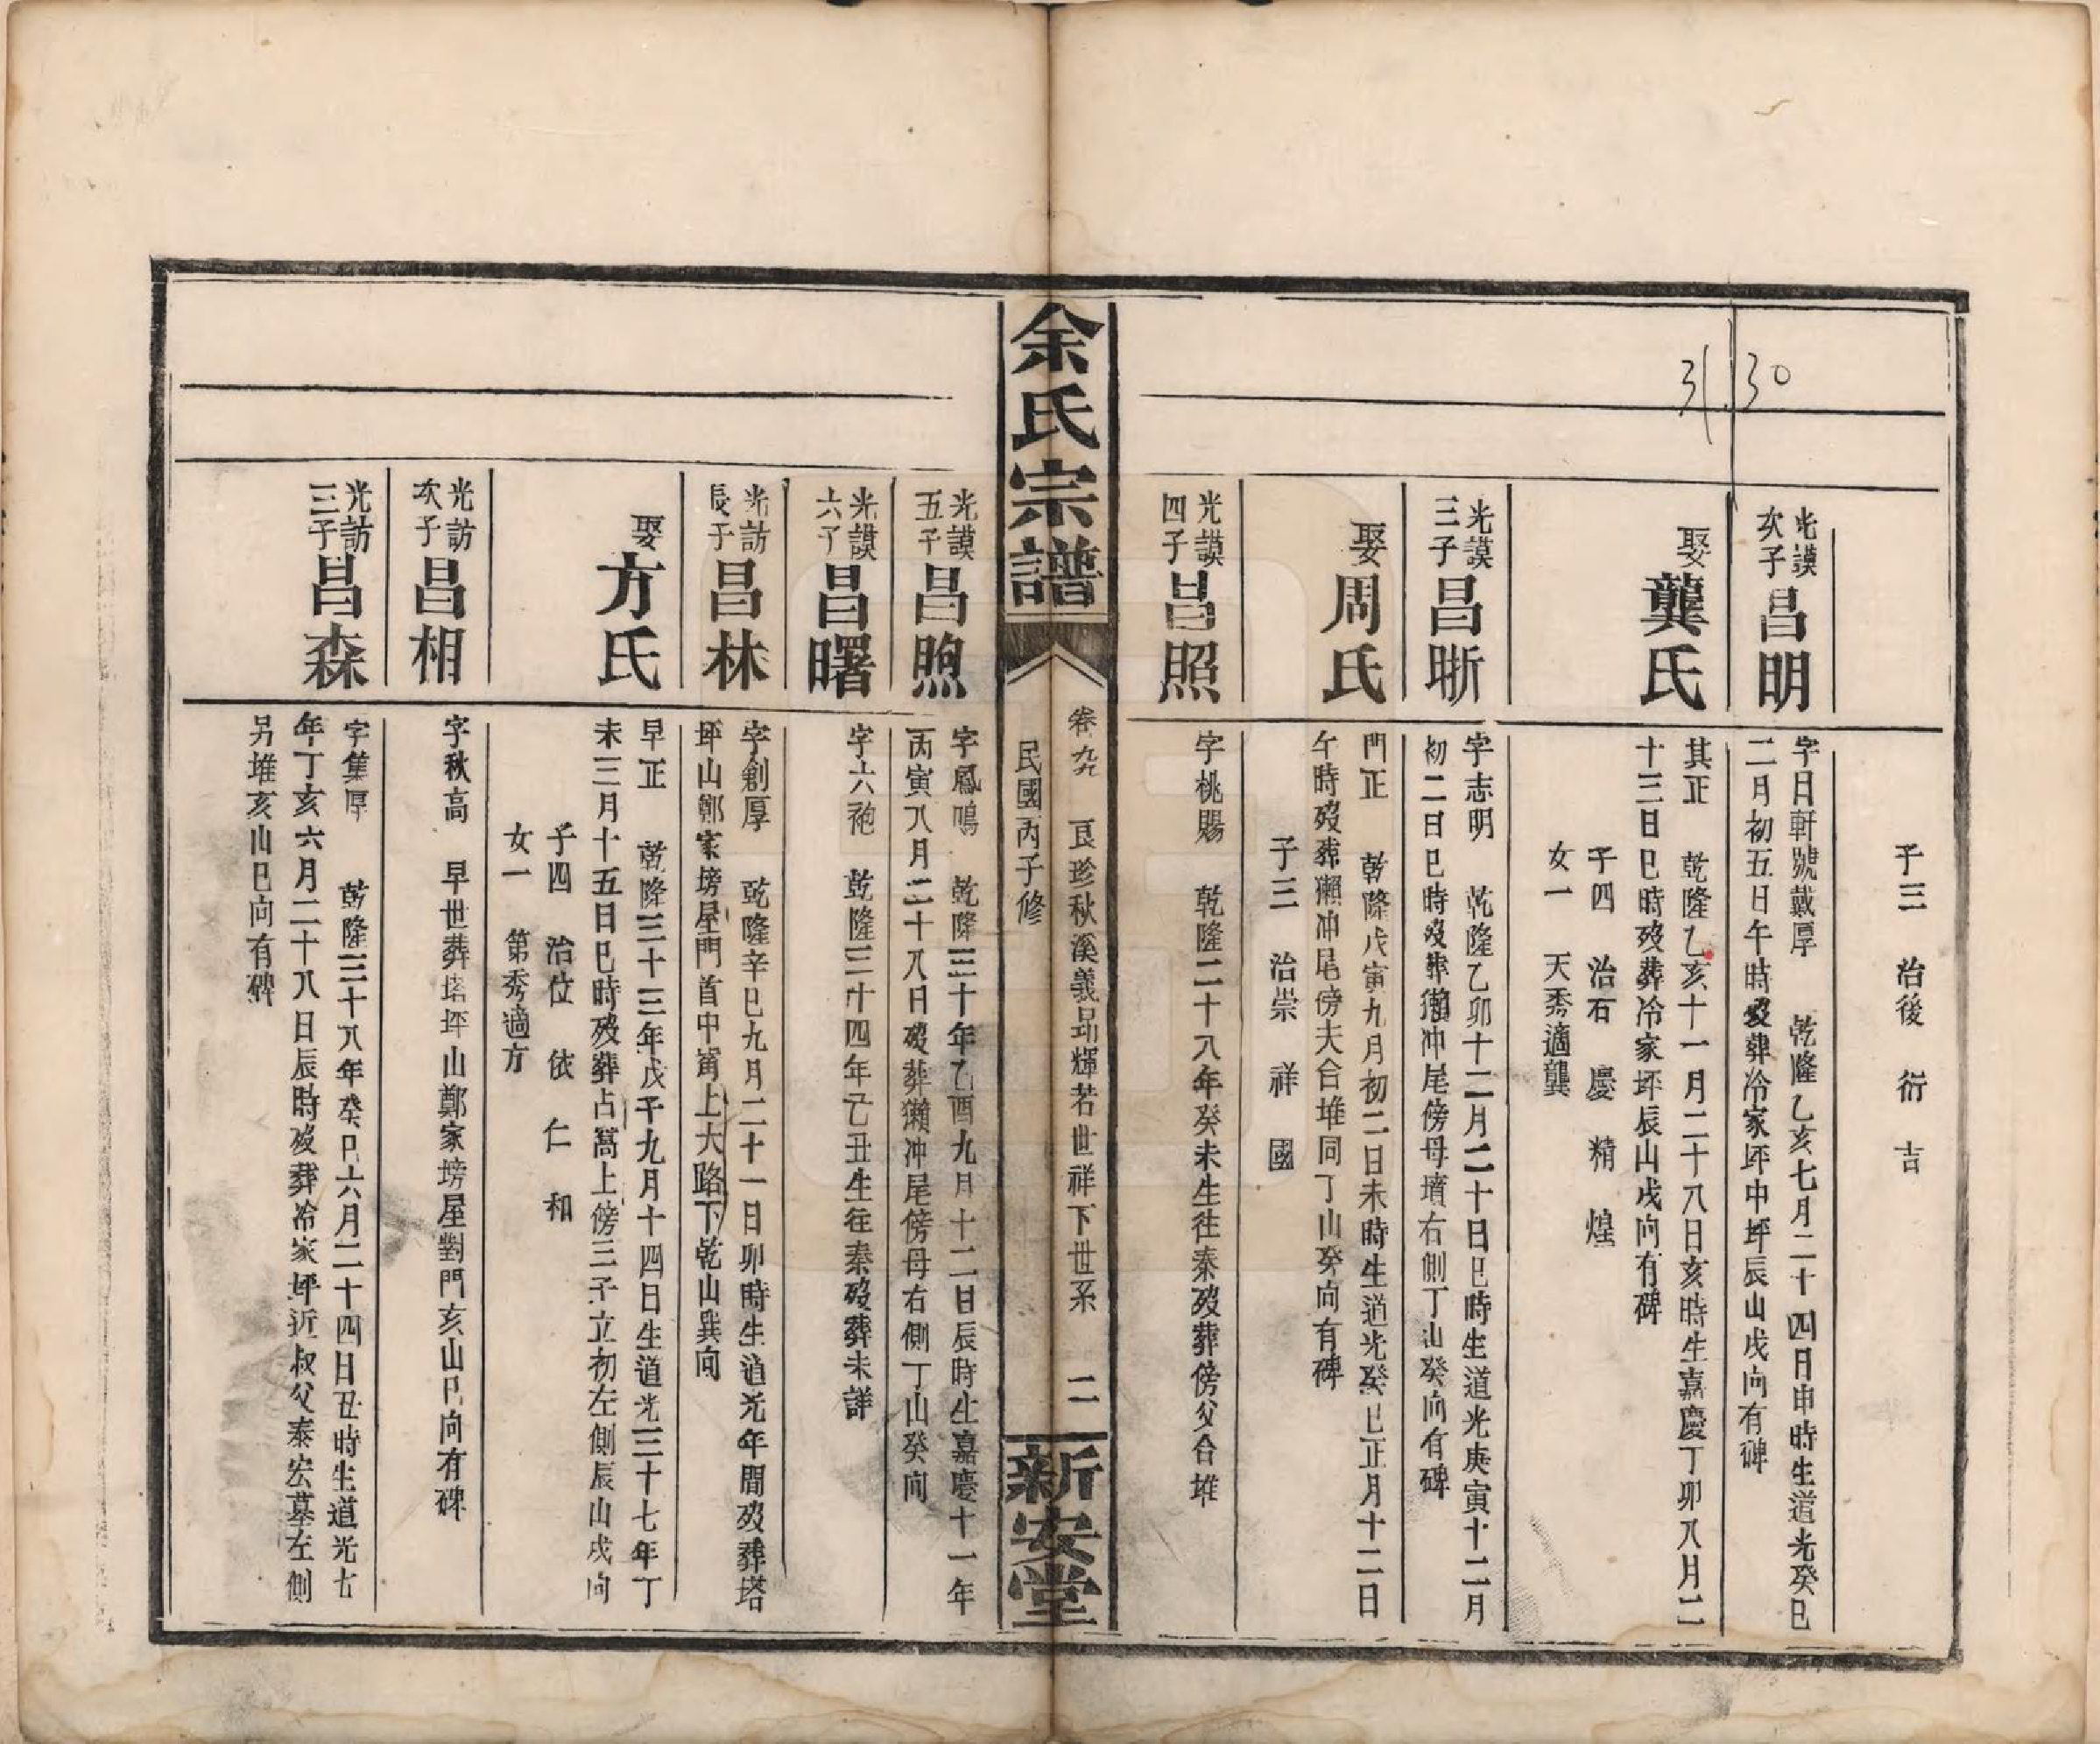 30
31
子三 治後 衍 吉
光謨次子 昌明
字日軒號戴厚 乾隆乙亥七月二十四日申時生道光癸巳
二月初五日午時歿葬冷家坪中坪辰山戌向有碑
娶 龔氏
其正 乾隆乙亥十一月二十八日亥時生嘉慶丁卯八月二
十三日巳時歿葬冷家坪辰山戌向有碑
子四 治石 慶 精 煌
女一 天秀適龔
光謨三子 昌晣
字志明 乾隆乙卯十二月二十日巳時生道光庚寅十二月
初二日巳時歿葬獺冲尾傍母墳右側丁山癸向有碑
娶 周氏
門正 乾隆戊寅九月初二日未時生道光癸巳正月十二日
午時歿葬獺冲尾傍夫合堆同丁山癸向有碑
子三 治崇 祥 國
光謨四子 昌照
字桃賜 乾隆二十八年癸未生往秦歿葬傍父合堆
余氏宗譜
卷九九 良珍秋溪義昻輝若世祥下世系 二
民國丙子修
新安堂
光謨五子 昌煦
字鳳鳴 乾隆三十年乙酉九月十二日辰時生嘉慶十一年
丙寅八月二十八日歿葬獺冲尾傍母右側丁山癸向
光謨六子 昌曙
字六袍 乾隆三十四年己丑生往秦歿葬未詳
光訪長子 昌林
字創厚 乾隆辛巳九月二十一日卯時生道光年間歿葬塔
坪山鄭家塝屋門首中窩上大路下乾山巽向
娶 方氏
早正 乾隆三十三年戊子九月十四日生道光三十七年丁
未三月十五日巳時歿葬占嵩上傍三子立初左側辰山戌向
子四 治位 依 仁 和
女一 第秀適方
光訪次子 昌相
字秋高 早世葬塔坪山鄭家塝屋對門亥山巳向有碑
光訪三子 昌森
字集厚 乾隆三十八年癸巳六月二十四日丑時生道光七
年丁亥六月二十八日辰時歿葬冷家坪近叔父泰宏墓左側
另堆亥山巳向有碑